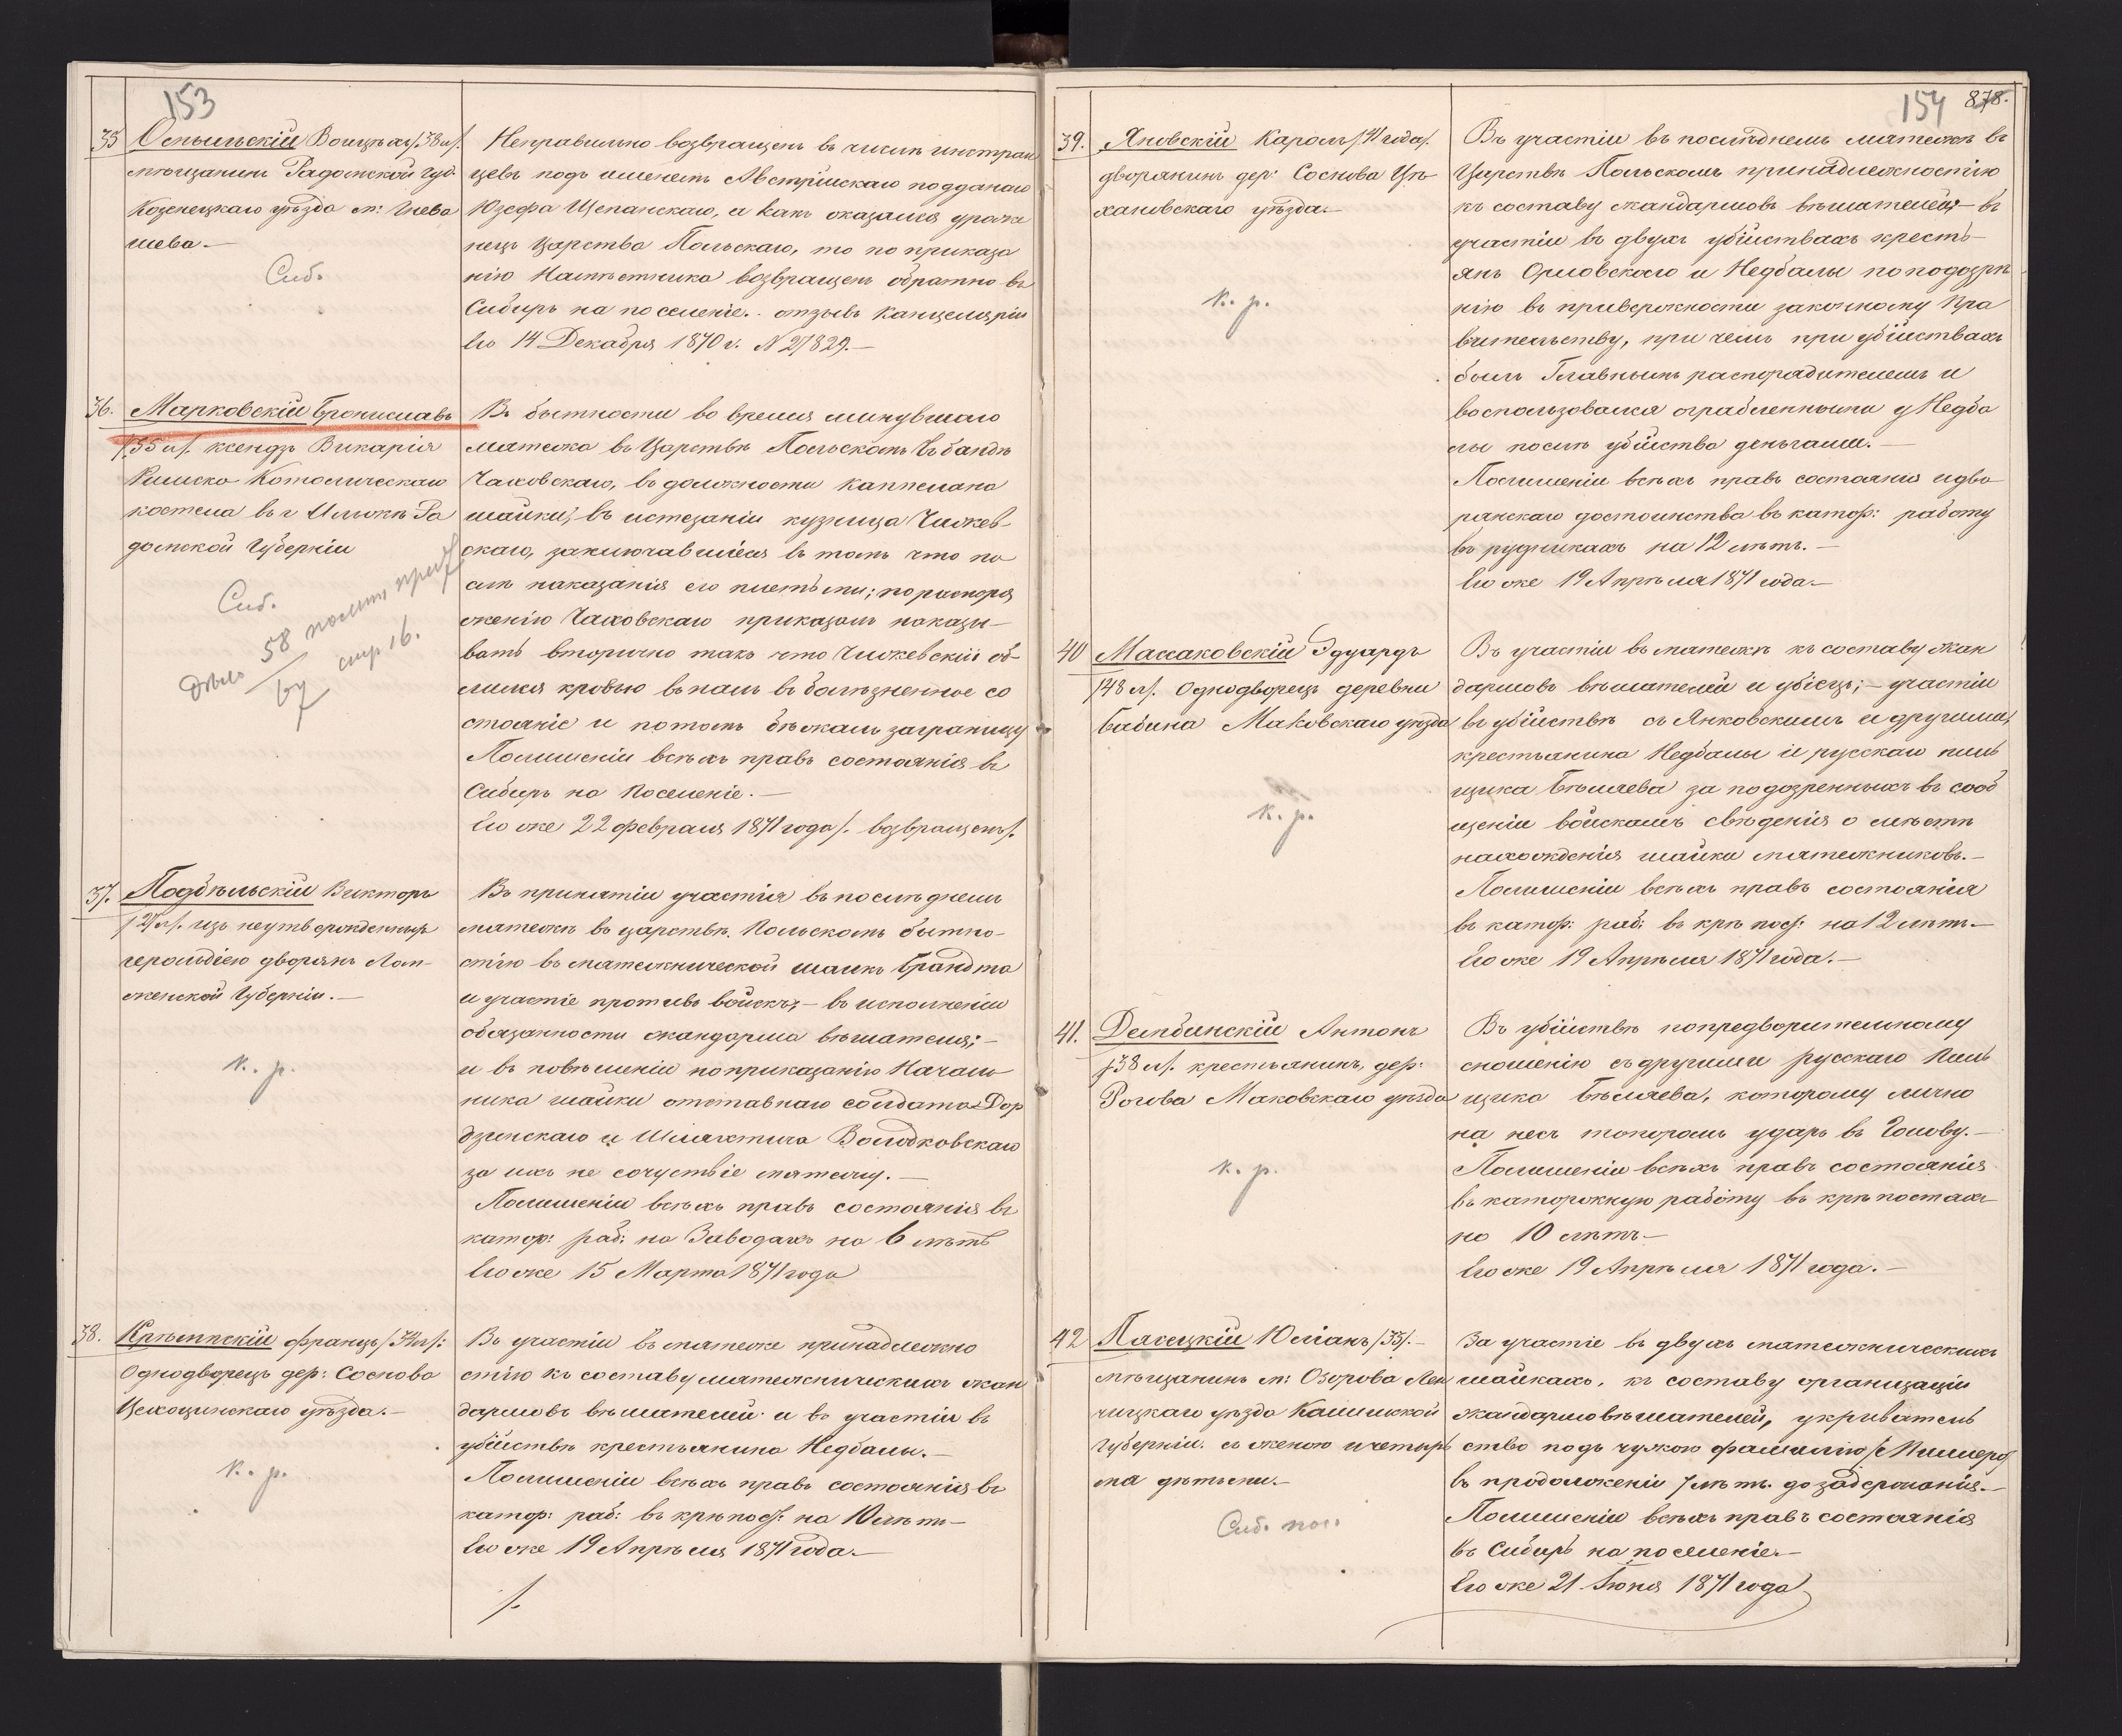 153
35 Осныльскій Войцѣхъ /.38 л/.
мѣщанинъ Радомской Губ.
Козенецкаго уѣзда м: Гнева
шева.—
Сиб.
Неправильно возвращенъ въ числѣ иностран
цевъ подъ именемъ Австрійскаго подданаго
Юзефа Щепанскаго, а какъ оказался уроже
нецъ Царства Польскаго, то по приказа
нію Намѣстника возвращенъ обратно въ
Сибирь на поселеніе.. отзывъ Канцеляріи
Его 14 Декабря 1870 г. N 27829.—
36. Марковскій Брониславъ
/.35 л/. ксендзъ Викарія
Римско Католическаго
костела въ г Илжѣ Ра
домской Губерніи
Сиб.
Дѣло 58/67 полит. преб
стр 16.
Въ бытности во время минувшаго
мятежа въ Царствѣ Польскомъ въ бандѣ
Чаховскаго, въ должности каппелана
шайки, въ истезаніи кузнеца Чижев
скаго, заключавшіеся въ томъ что по
слѣ наказанія его плетьми; по распоря
женію Чаховскаго приказалъ наказы—
вать вторично такъ что Чижевскій об-
лился кровью впалъ въ болѣзненное со
стояніе и потомъ бѣжалъ заграницу
Полишеніи всѣхъ правъ состоянія въ
Сибирь на Поселеніе.—
Его же 22 февраля 1871 года /. возвращенъ/.
37. Подбѣльскій Викторъ
/.27 л/. изъ неутвержденныхъ
герольдіею дворянъ Лом-
женской Губерніи.—
К. р.
Въ принятіи участія въ послѣднемъ
мятежѣ въ царствѣ Польскомъ бытно-
стію въ мятежнической шайкѣ Брандта
и участіе противъ войскъ;— въ исполненіи
обязанности жандарма вѣшателя;—
и въ повѣшеніи поприказанію Началь-
ника шайки отставнаго солдата Дор
дзинскаго и Шляхтича Володковскаго
за ихъ не сочуствіе мятежу.—
Полишеніи всѣхъ правъ состоянія въ
катор: раб: на Заводахъ на 6 лѣтъ
Его же 15 Марта 1871 года
38. Кржемпскій Францъ /.34 л/:
Однодворецъ дер: Соснова
Цехоцинскаго уѣзда.—
К. р.
Въ участіи въ мятеже принадлежно
стію къ составу мятежническихъ жан
дармовъ вѣшателей и въ участіи въ
убійствѣ крестьянина Недбалы.—
Полишеніи всѣхъ правъ состоянія въ
катор: раб: въ крѣпос: на 10 лѣтъ—
Его же 19 Апрѣля 1871 года.—
154 878.
39. Яновскій Кароль /.41 года/.
дворянинъ дер: Соснова Цѣ-
хановскаго уѣзда.—
К. р.
Въ участіи въ послѣднемъ мятежѣ въ
Царствѣ Польскомъ принадлежностію
къ составу жандармовъ вѣшателей;— въ
участіи въ двухъ убійствахъ кресть-
янъ Орловскаго и Недбалы поподозрѣ
нію въ приверженности законному Пра
вительству, при чемъ при убійствахъ
былъ Главнымъ распорядителемъ и
воспользовался ограбленными у Недба
лы послѣ убійства деньгами.—
Полишеніи всѣхъ правъ состоянія и дво
рянскаго достоинства въ катор: работу
въ рудникахъ на 12 лѣтъ.—
Его же 19 Апрѣля 1871 года.—
40 Массаковскій Эдуардъ
/.48 л/. Однодворецъ деревни
Бабина Маковскаго уѣзда
К. р.
Въ участіи въ мятежѣ къ составу жан
дармовъ вѣшателей и убіецъ;— участіи
въ убійствѣ съ Янковскимъ и другими,
крестьянина Недбалы и русскаго пиль
щика Бѣляева за подозренныхъ въ сооб
щеніи войскамъ свѣденія о мѣстѣ
нахожденія шайки мятежниковъ.—
Полишеніи всѣхъ правъ состоянія
въ катор: раб: въ крѣпос: на 12 лѣтъ.—
Его же 19 Апрѣля 1871 года.—
41. Дембинскій Антонъ
/.38 л/. крестьянинъ, дер:
Рогова Маковскаго уѣзда
К. р.
Въ убійствѣ попредворительному
сношенію съ другими русскаго Пиль
щика Бѣляева, которому лично
на несъ топоромъ ударъ въ Голову.—
Полишеніи всѣхъ правъ состоянія
въ каторжную работу въ крѣпостахъ
на 10 лѣтъ—
Его же 19 Апрѣля 1871 года.—
42 Пясецкій Юліанъ /35/.—
мѣщанинъ м: Озорова Лен
чицкаго уѣзда Калишской
Губерніи. съ женою и четырь
мя дѣтьми.—
Сиб. пос.
За участіе въ двухъ мятежническихъ
шайкахъ, къ составу организаціи
жандармовѣшателей, укриватель
ство подъ чужою фамиліею /: Миллера
въ продолженіи 7 лѣтъ. до задержанія.—
Полишеніи всѣхъ правъ состоянія
въ Сибирь на поселеніе.—
Его же 21 Іюня 1871 года